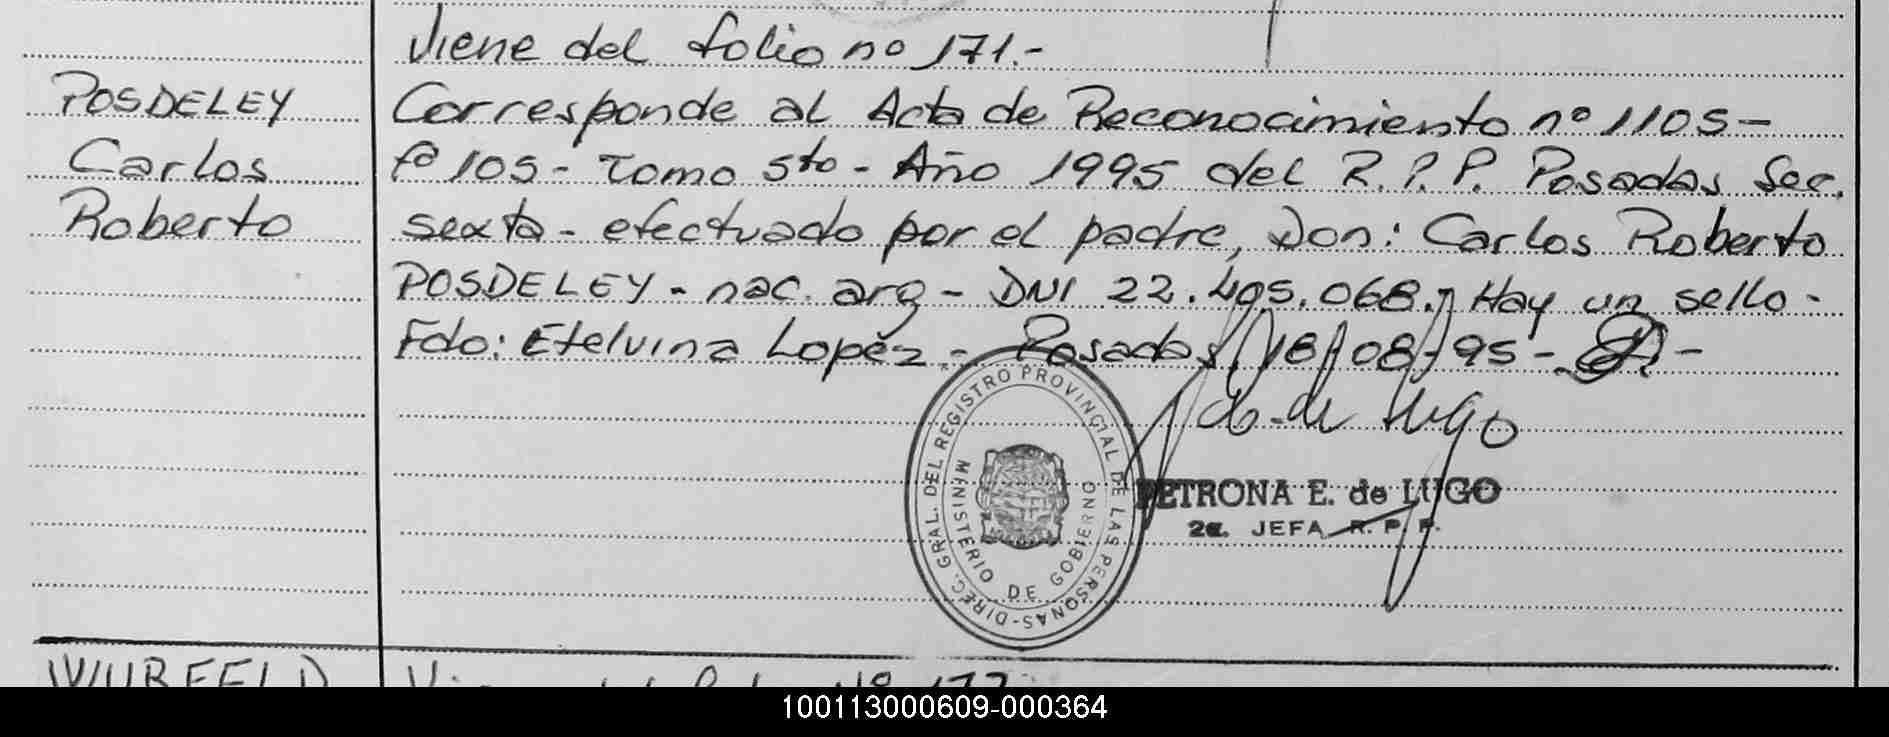 Viene del folio nº 171.-
POSDELEY
Carlos
Roberto
Corresponde al Acta de Reconocimiento nº 1105-
fº 105- Tomo 5to - Año 1995 del R.P.P. Posadas Sec.
sexta - efectuado por el padre, Don: Carlos Roberto
POSDELEY - nac. arg - DNI 22.495.068.- Hay un sello -
Fdo: Etelvina Lopez - Posadas, 18/08/95 -
de Lugo
PETRONA E. de LUGO
2a. JEFA R. P. P.
DIREC. GRAL. DEL REGISTRO PROVINCIAL DE LAS PERSONAS -
MINISTERIO DE GOBIERNO
WURFELD
100113000609-000364